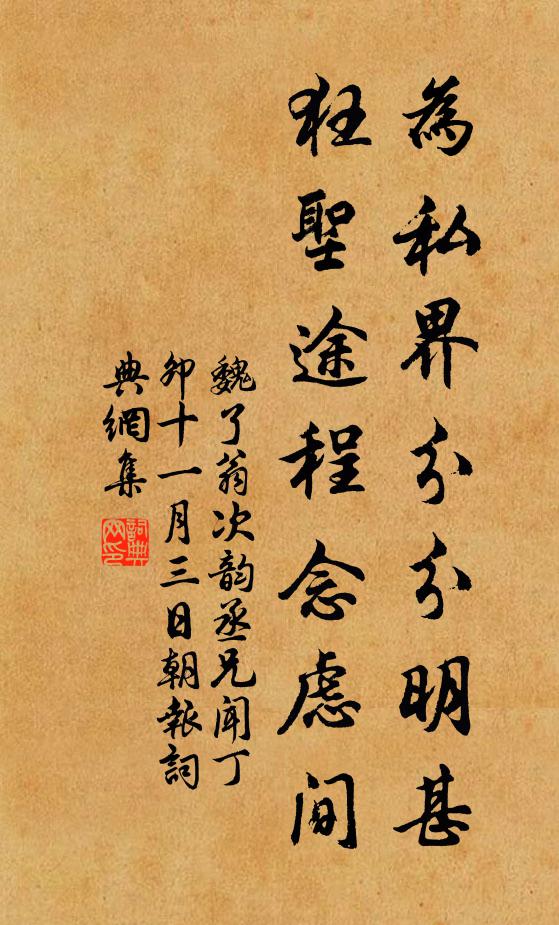 為私界分分明甚
狂聖途程念慮間
魏了翁次韵丞兄聞丁
卯十一月三日朝報詞
典網集
詞典网印